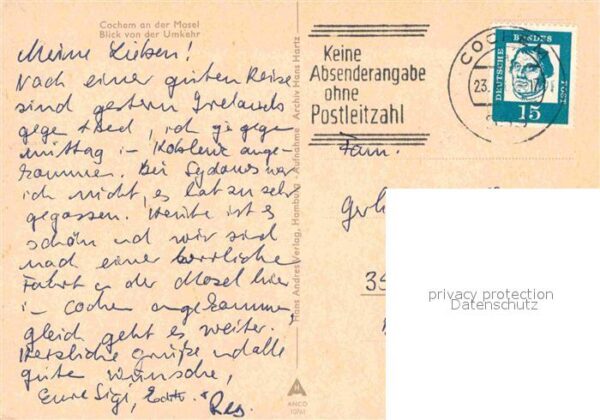 Cochem an der Mosel
Blick von der Umkehr
Meine Lieben!
Nach einer guten Reise
sind gestern
gegen
mittag in Koblenz ange-
kommen. Bei war
ich nicht, es hat zu sehr
gegossen. Heute ist es
schön und wir sind
nach einer herrliche
Fahrt an der Mosel hier
in Cochem angekommen,
gleich geht es weiter.
Herzliche Grüße und alle
gute Wünsche,
Eure Sigi, Edith.
Hans Andres Verlag, Hamburg - Aufnahme Archiv Hans Hartz
ANCO
Keine
Absenderangabe
ohne
Postleitzahl
COCHEM
23.
DEUTSCHE BUNDESPOST
15
Fam.
35
privacy protection
Datenschutz